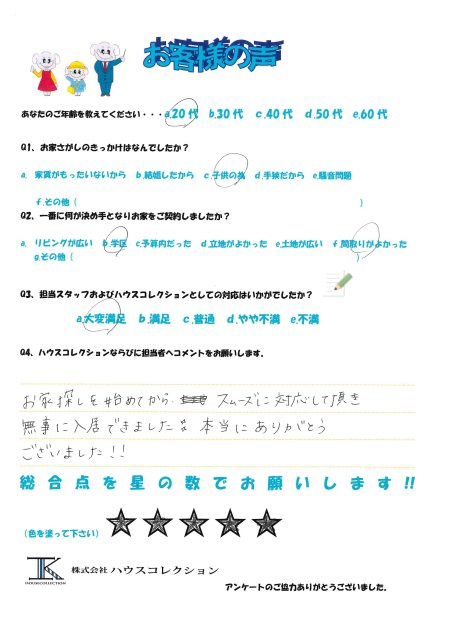 お客様の声
あなたのご年齢を教えてください・・・a.20代 b.30代 c.40代 d.50代 e.60代
Q1、お家さがしのきっかけはなんでしたか？
a. 家賃がもったいないから b.結婚したから c.子供の為 d.手狭だから e.騒音問題
f.その他（ ）
Q2、一番に何が決め手となりお家をご契約しましたか？
a. リビングが広い b.学区 c.予算内だった d.立地がよかった e.土地が広い f.間取りがよかった
g.その他（ ）
Q3、担当スタッフおよびハウスコレクションとしての対応はいかがでしたか？
a.大変満足 b.満足 c.普通 d.やや不満 e.不満
Q4、ハウスコレクションならびに担当者へコメントをお願いします。
お家探しを始めてから スムーズに対応して頂き
無事に入居できました 本当にありがとう
ございました!!
総合点を星の数でお願いします!!
（色を塗って下さい）
K HOUSECOLLECTION 株式会社 ハウスコレクション
アンケートのご協力ありがとうございました。